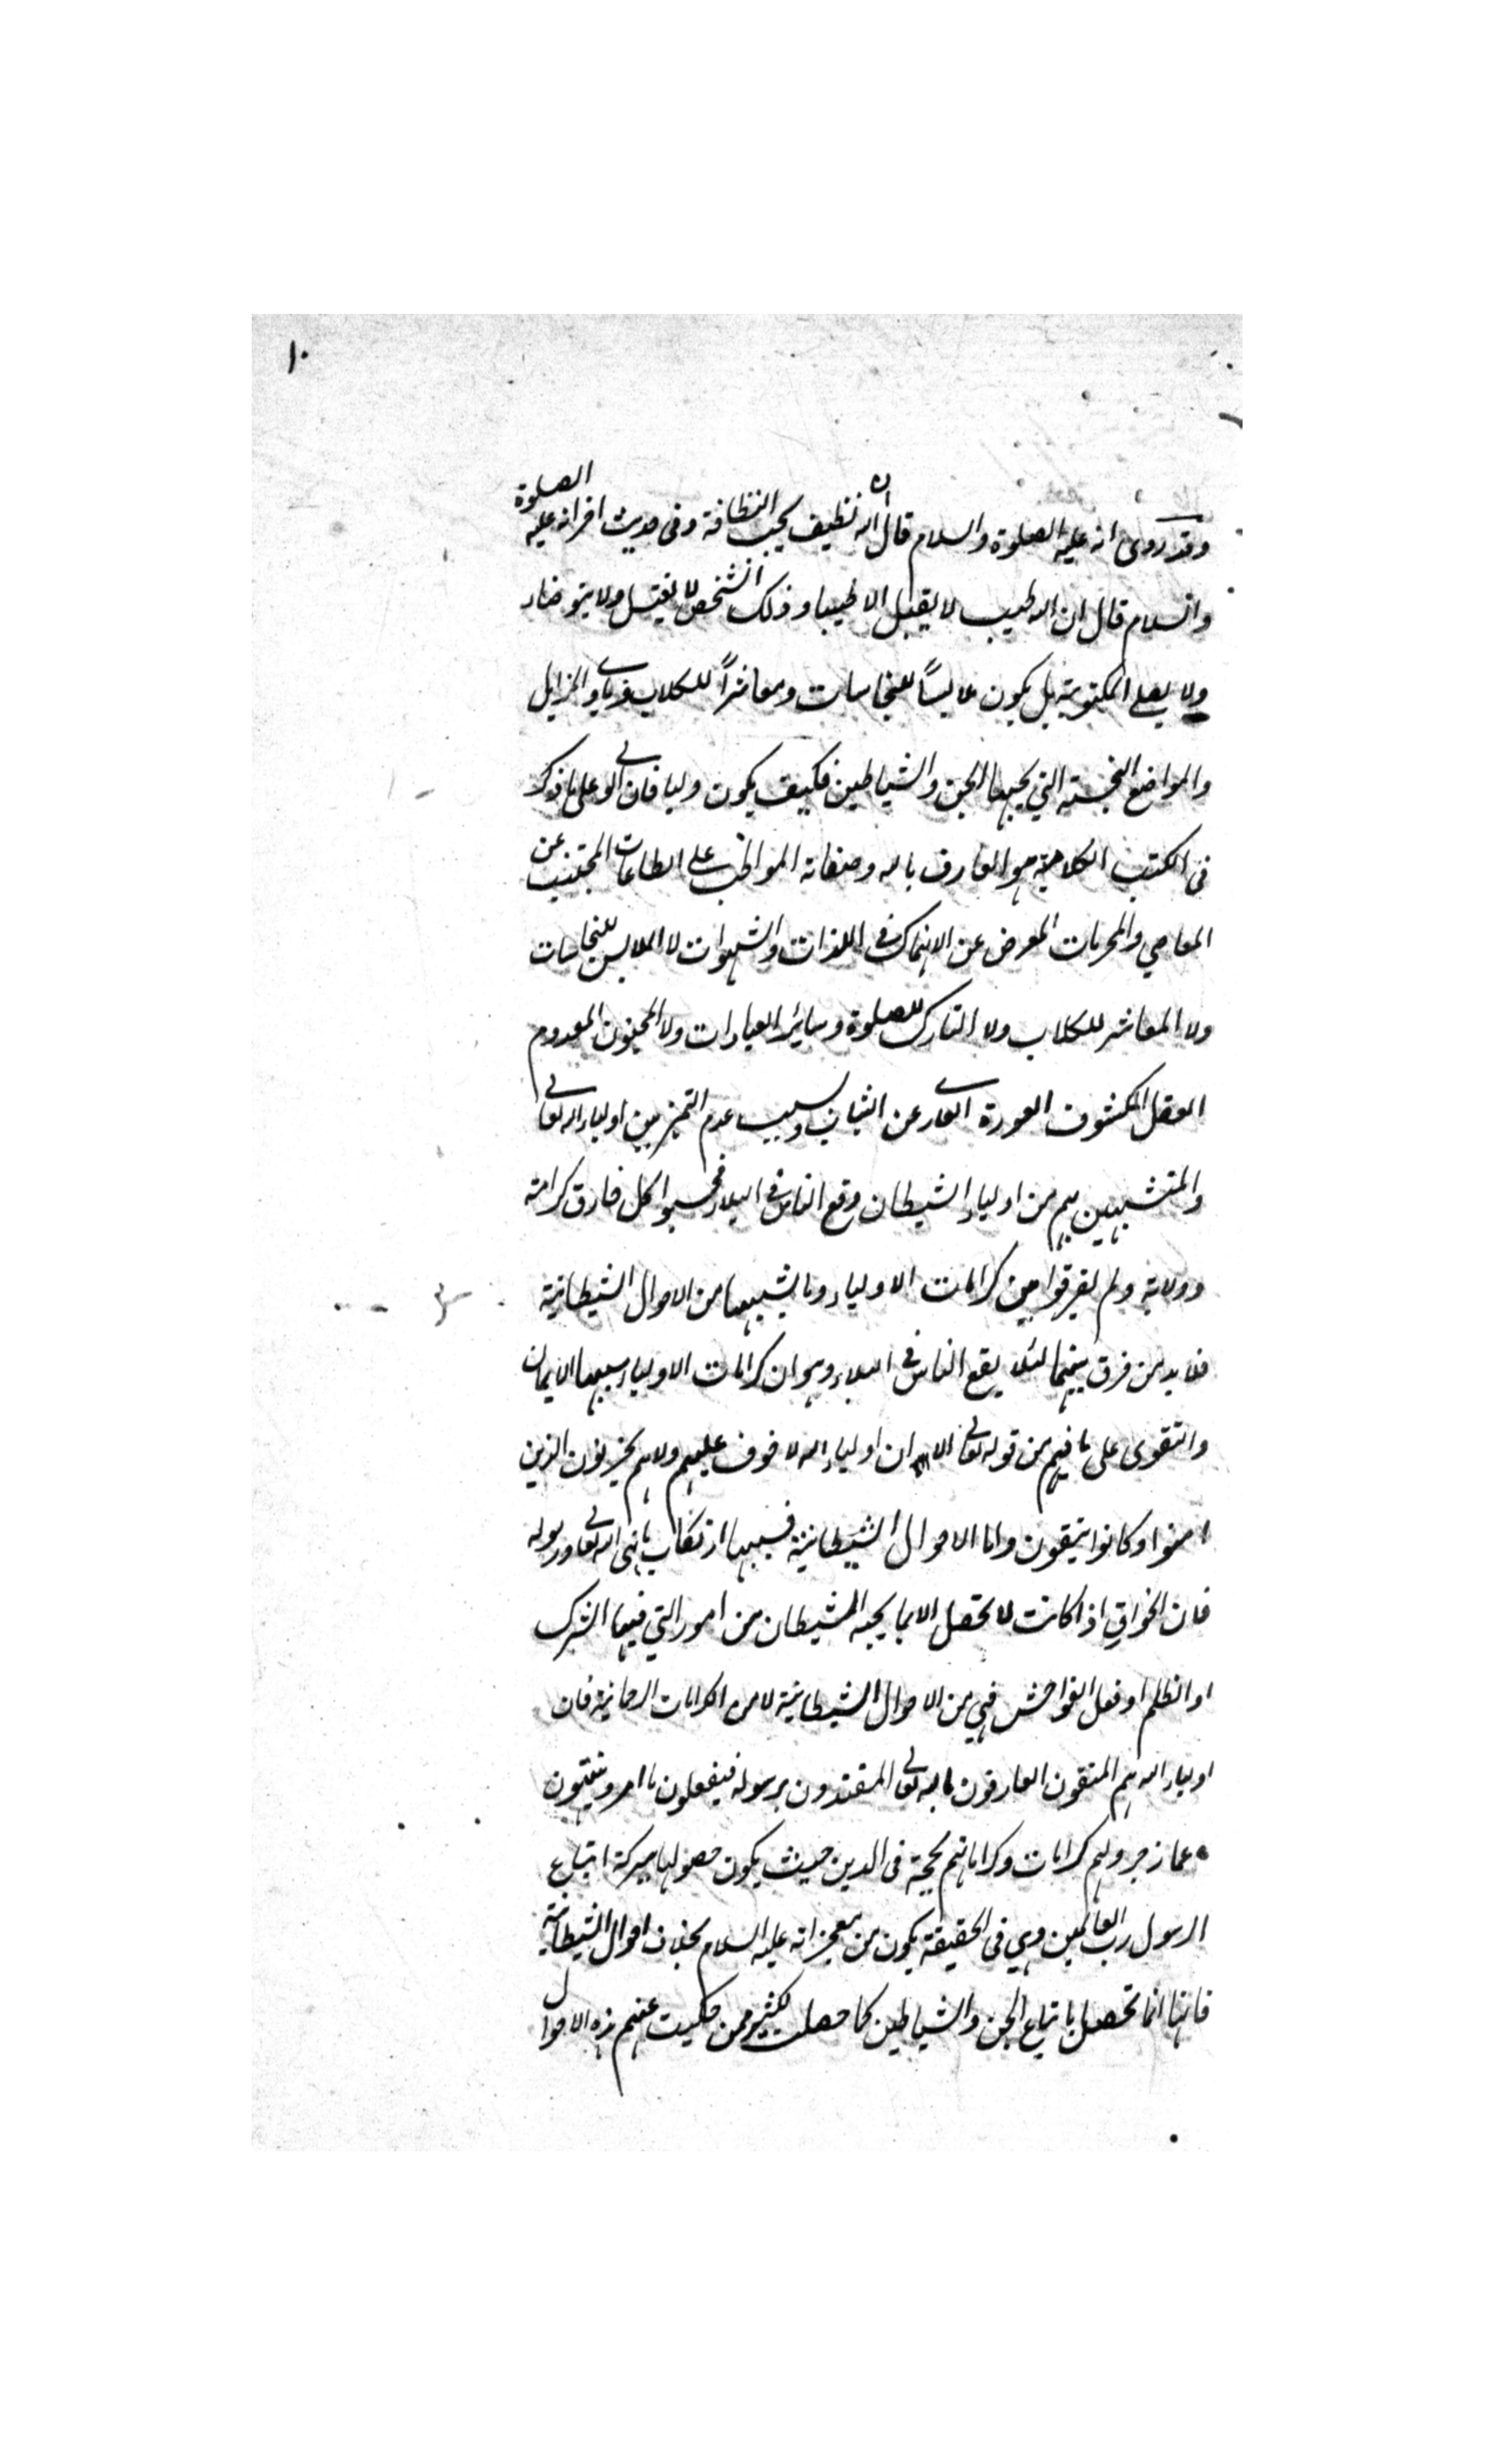 ١٠
وقد روى انه عليه الصلوة والسلام قال ان الله نظيف يحب النظافة وفى حديث اخر انه عليه الصلوة
والسلام قال ان الله طيب لا يقبل الا طيبا وذلك الشخص لا يغتسل ولا يتوضاء
ولا يصلى المكتوبة بل يكون ملابسًا للنجاسات ومعاشرًا للكلاب وياوى المزابل
والمواضع النجسة التي يحبها الجن والشياطين فكيف يكون وليا فان الولى على ما ذكر
فى الكتب الكلامية هو العارف بالله وصفاته المواظب على الطاعات المجتنب عن
المعاصي والمحرمات المعرض عن الانهماك فى اللذات والشهوات لا الملابس للنجاسات
ولا المعاشر للكلاب ولا التارك للصلوة وسائر العبادات ولا المجنون المعدوم
العقل المكشوف العورة العارى عن الثياب وبسبب عدم التميز بين اولياء الله تعالى
والمتشبهين بهم من اولياء الشيطان وقع الناس فى البلاء فحسبوا كل خارق كرامة
وولاية ولم يفرقوا بين كرامات الاولياء وما يشبهها من الاحوال الشيطانية
فلا بد من فرق بينهما لئلا يقع الناس فى البلاء وهو ان كرامات الاولياء سببها الايمان
والتقوى على ما فهم من قوله تعالى الا ان اولياء الله لا خوف عليهم ولا هم يحزنون الذين
امنوا وكانوا يتقون واما الاحوال الشيطانية فسببها ارتكاب ما نهى الله تعالى ورسوله
فان الخوارق اذا كانت لا تحصل الا بما يحبه الشيطان من امور التي فيها الشرك
او الظلم او فعل الفواحش فهي من الاحوال الشيطانية لا من الكرامات الرحمانية فان
اولياء الله هم المتقون العارفون بالله تعالى المقتدون برسوله فيفعلون ما امر وينتهون
عما زجر ولهم كرامات وكراماتهم لحجة فى الدين حيث يكون حصولها ببركة اتباع
الرسول رب العالمين وهي فى الحقيقة يكون من معجزاته عليه السلام بخلاف احوال الشيطانية
فانها انما تحصل باتباع الجن والشياطين كما حصلت لكثير ممن حكيت عنهم هذه الاحوال